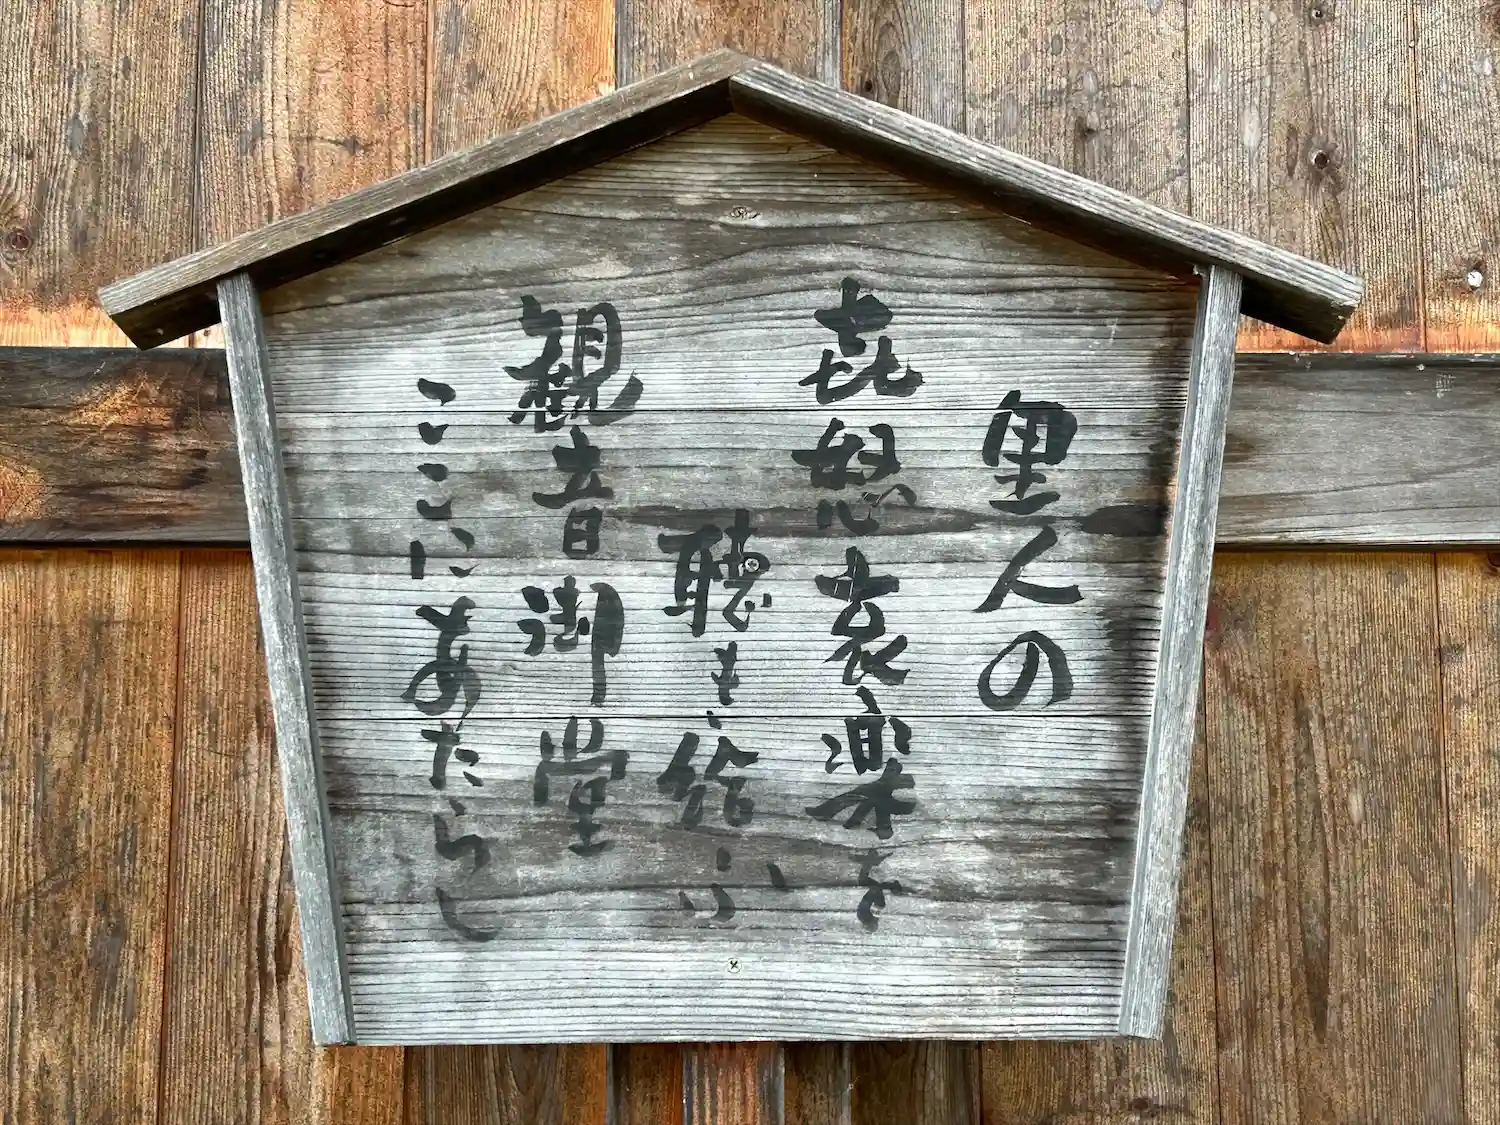 里人の
㐂怒哀楽を
聴もし給ふ
観音御堂
ここにあたらし